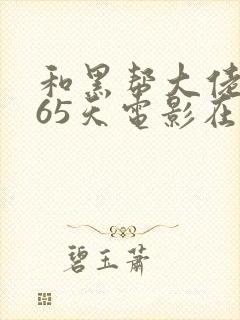 和黑帮大佬
65天电影在
碧玉萧